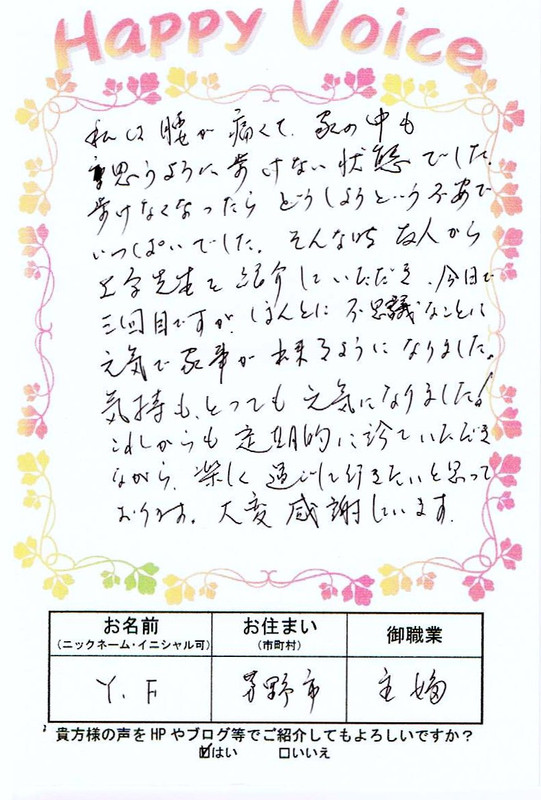 Happy Voice
私は腰が痛くて、家の中も
思うように歩けない状態でした。
歩けなくなったらどうしようという不安で
いっぱいでした。そんな時友人から
先生を紹介していただき、今日で
三回目ですが、ほんとに不思議なことに
元気で家事が出来るようになりました。
気持も、とっても元気になりました！
これからも定期的に診ていただき
ながら、楽しく過ごして行きたいと思って
おります。大変感謝しています。
お名前 お住まい 御職業
(ニックネーム・イニシャル可) (市町村)
Y.F 茅野市 主婦
貴方様の声をHPやブログ等でご紹介してもよろしいですか？
☑はい □いいえ